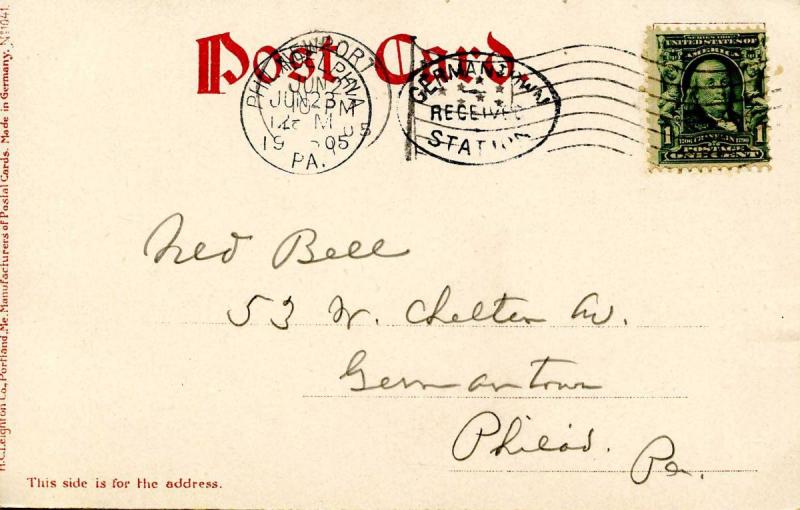 Post Card.
NEWPORT
JUN 2
PHILADELPHIA
JUN 23
12 M
1905
PA.
GERMANTOWN
RECEIVED
STATION
UNITED STATES OF
AMERICA
1 1
POSTAGE
ONE CENT
Ned Bell
53 W. Chelten Av.
Germantown
Philad. Pa.
This side is for the address.
H.C. Leighton Co., Portland, Me. Manufacturers of Postal Cards. Made in Germany. No 1041.